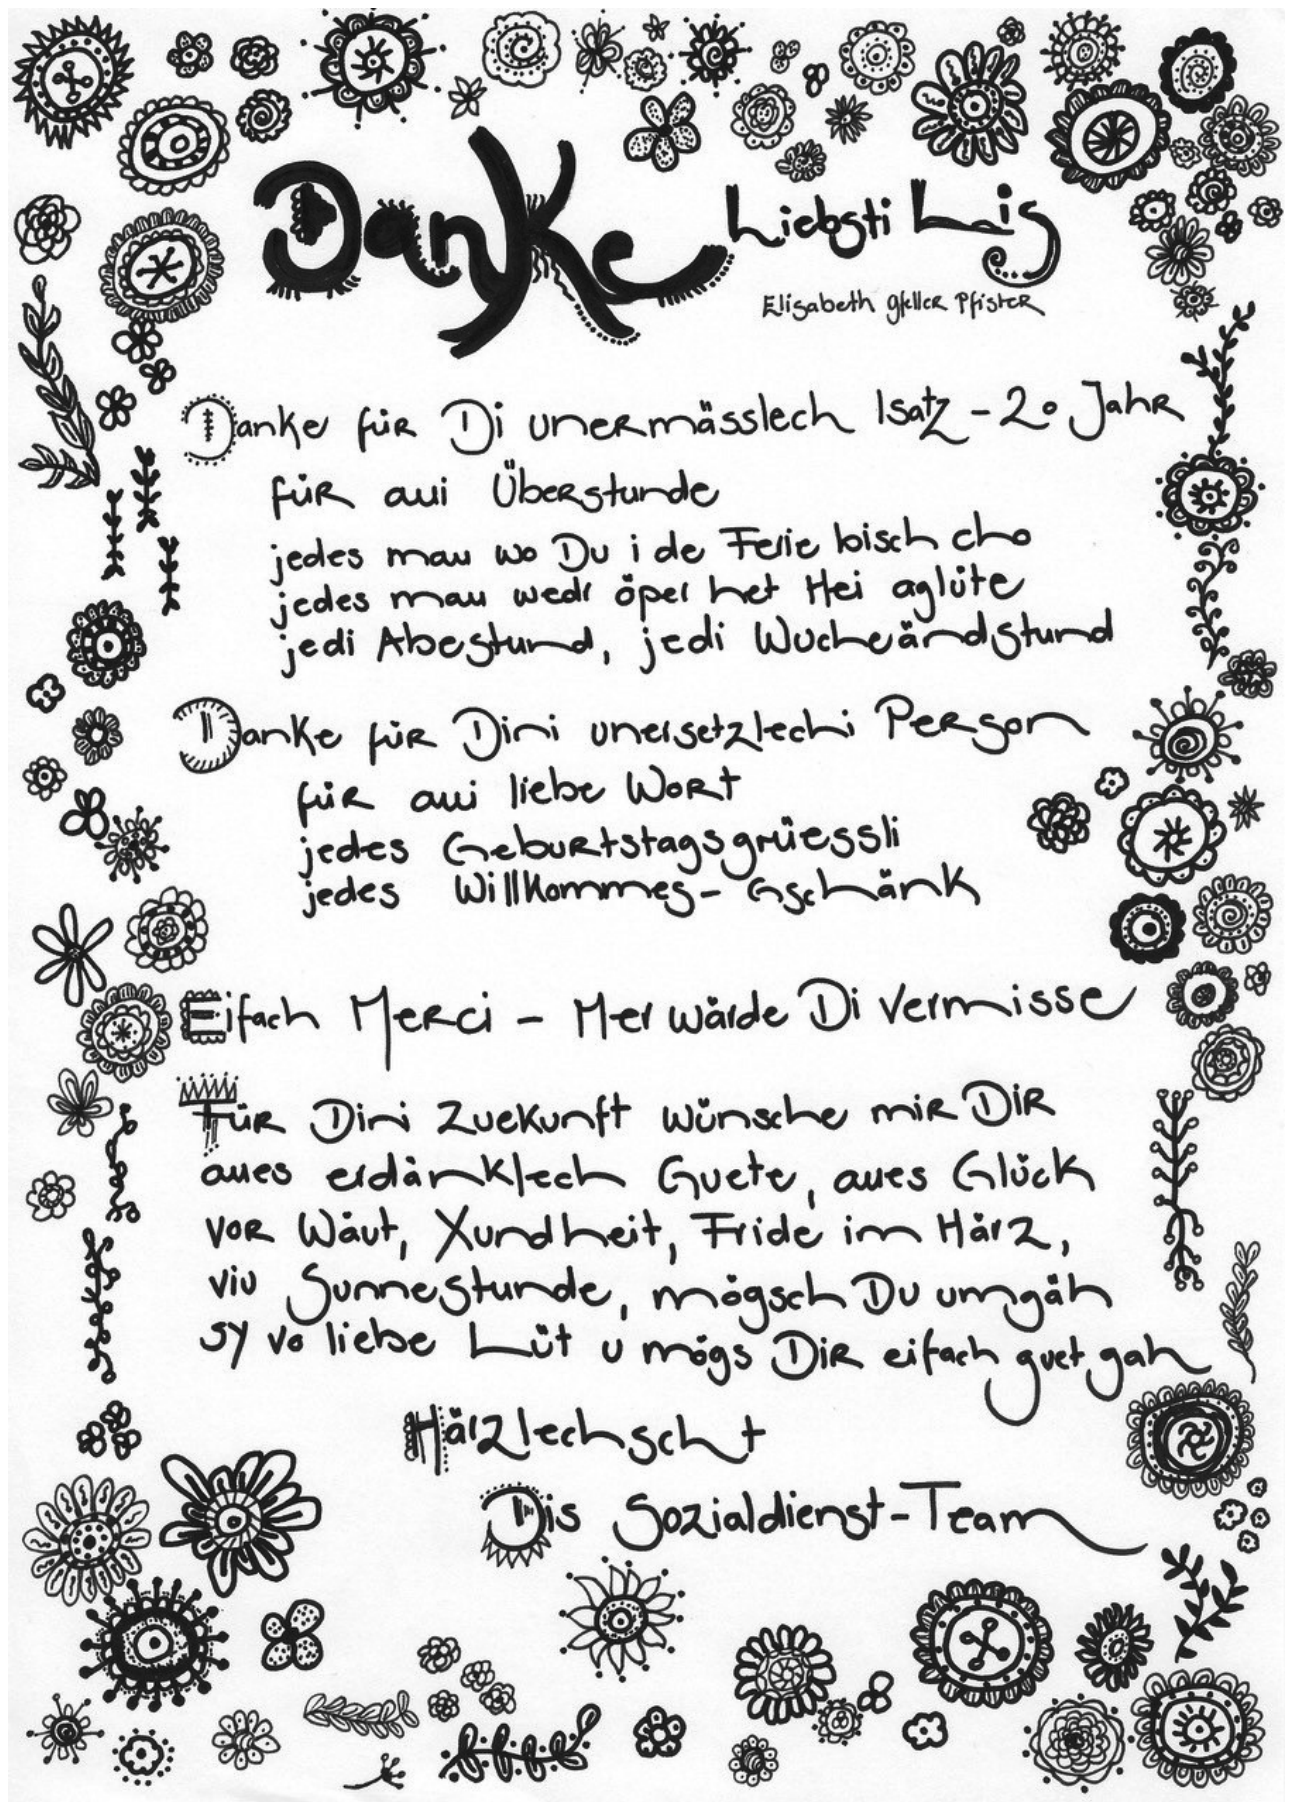 Danke Liebsti Lis
Elisabeth Gfeller Pfister
Danke für Di unermässlech Isatz - 20 Jahr
für aui Überstunde
jedes mau wo Du i de Ferie bisch cho
jedes mau wedr öper het Hei aglüte
jedi Abestund, jedi Wucheändstund
Danke für Dini unersetzlechi Person
für aui liebe Wort
jedes Geburtstagsgrüessli
jedes Willkommes-Gschänk
Eifach Merci - Mer wärde Di vermisse
Für Dini Zuekunft wünsche mir Dir
aues erdänklech Guete, aues Glück
vor Wäut, Xundheit, Fride im Härz,
viu Sunnestunde, mögsch Du umgäh
sy vo liebe Lüt u mögs Dir eifach guet gah
Härzlechscht
Dis Sozialdienst-Team